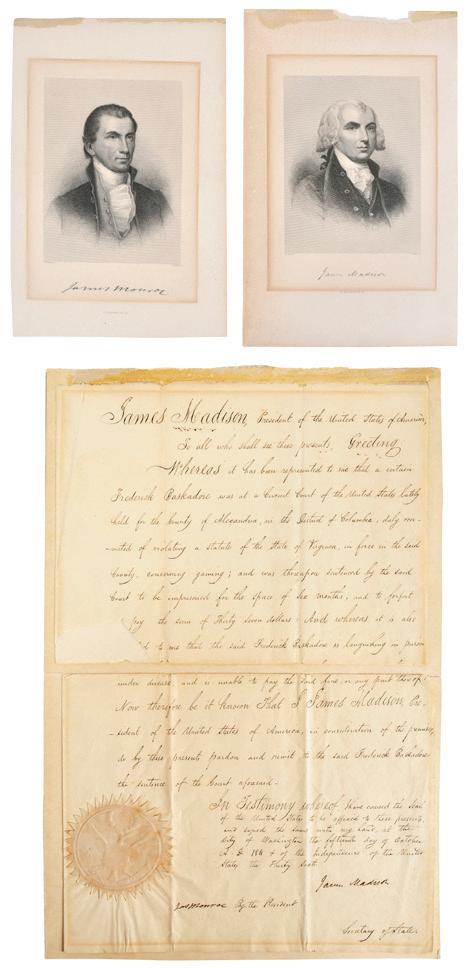 James Monroe
James Madison
James Madison, President of the United States of America,
To all who shall see these presents, Greeting
Whereas it has been represented to me that a certain
Frederick Baskadore was at a Circuit Court of the United States lately
held for the County of Alexandria, in the District of Columbia, duly con-
victed of violating a statute of the State of Virginia, in force in the said
County, concerning gaming; and was thereupon sentenced by the said
Court to be imprisoned for the space of six months, and to forfeit
pay the sum of Thirty seven dollars. And whereas it is also
to me that the said Frederick Baskadore is languishing in prison
under disease, and is unable to pay the said fine, or any part thereof:
Now therefore be it known That I James Madison, Pre-
sident of the United States of America, in consideration of the premises,
do by these presents pardon and remit to the said Frederick Baskadore
the sentence of the Court aforesaid.
In Testimony whereof I have caused the Seal
of the United States to be affixed to these presents,
and signed the same with my hand, at the
City of Washington the fifteenth day of October
A.D. 1811 & of the Independence of the United
States the Thirty Sixth.
James Madison
Jas Monroe By the President
Secretary of State.